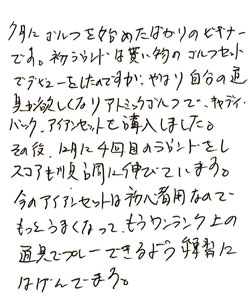 7月にゴルフを始めたばかりのビギナー
です。初ラウンドは貰い物のゴルフセット
でデビューをしたのですが、やはり自分の道
具が欲しくなりアトミックゴルフで、キャディ
バック、アイアンセットを購入しました。
その後、12月に4回目のラウンドをし
スコアも順調に伸びています。
今のアイアンセットは初心者用なので
もっとうまくなって、もうワンランク上の
道具でプレーできるよう練習に
はげんでます。